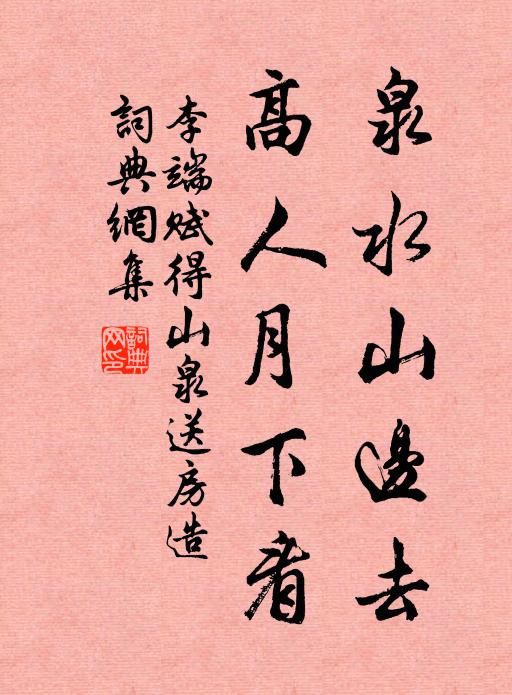 泉水山邊去
高人月下看
李端賦得山泉送房造
詞典網集
詞典網印